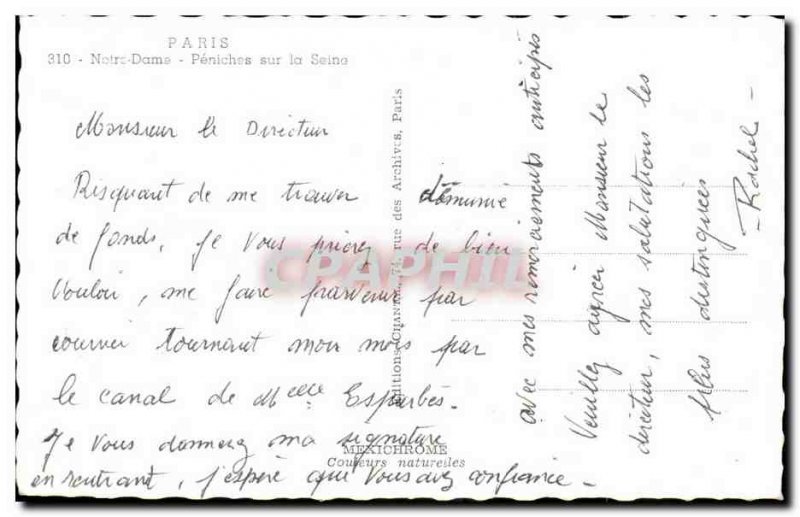 PARIS
310 - Notre-Dame - Péniches sur la Seine
Monsieur le Directeur
Risquant de me trouver démunie
de fonds, je vous prierez de bien
vouloir, me faire parvenir par
courrier tournant mon mois par
le canal de Melle Esparbès.
Je vous donnerez ma signature
en rentrant, j'espère que vous avez confiance -
avec mes remerciements anticipés
Veuillez agréer Monsieur le
directeur, mes salutations les
plus distinguées
- Rachel -
Editions CHANTAL, 74, rue des Archives, Paris
MEXICHROME
Couleurs naturelles
CPAPHIL